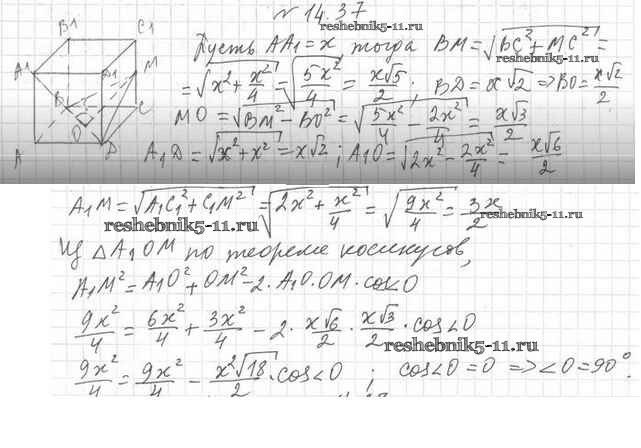 № 14.37
reshebnik5-11.ru
B1 C1
A1 D1 M
B C
O
A D
Пусть AA1 = x, тогда BM = √(BC² + MC²) =
= √(x² + x²/4) = √(5x²/4) = x√5/2 ; BD = x√2 => BO = x√2/2
MO = √(BM² - BO²) = √(5x²/4 - 2x²/4) = x√3/2
A1D = √(x² + x²) = x√2 ; A1O = √(2x² - 2x²/4) = x√6/2
reshebnik5-11.ru
A1M = √(A1C1² + C1M²) = √(2x² + x²/4) = √(9x²/4) = 3x/2
reshebnik5-11.ru
reshebnik5-11.ru
Из △A1OM по теореме косинусов,
A1M² = A1O² + OM² - 2·A1O·OM·cos∠O
9x²/4 = 6x²/4 + 3x²/4 - 2· x√6/2 · x√3/2 · cos∠O
reshebnik5-11.ru
9x²/4 = 9x²/4 - x²√18/2 · cos∠O ; cos∠O = 0 => ∠O = 90°.